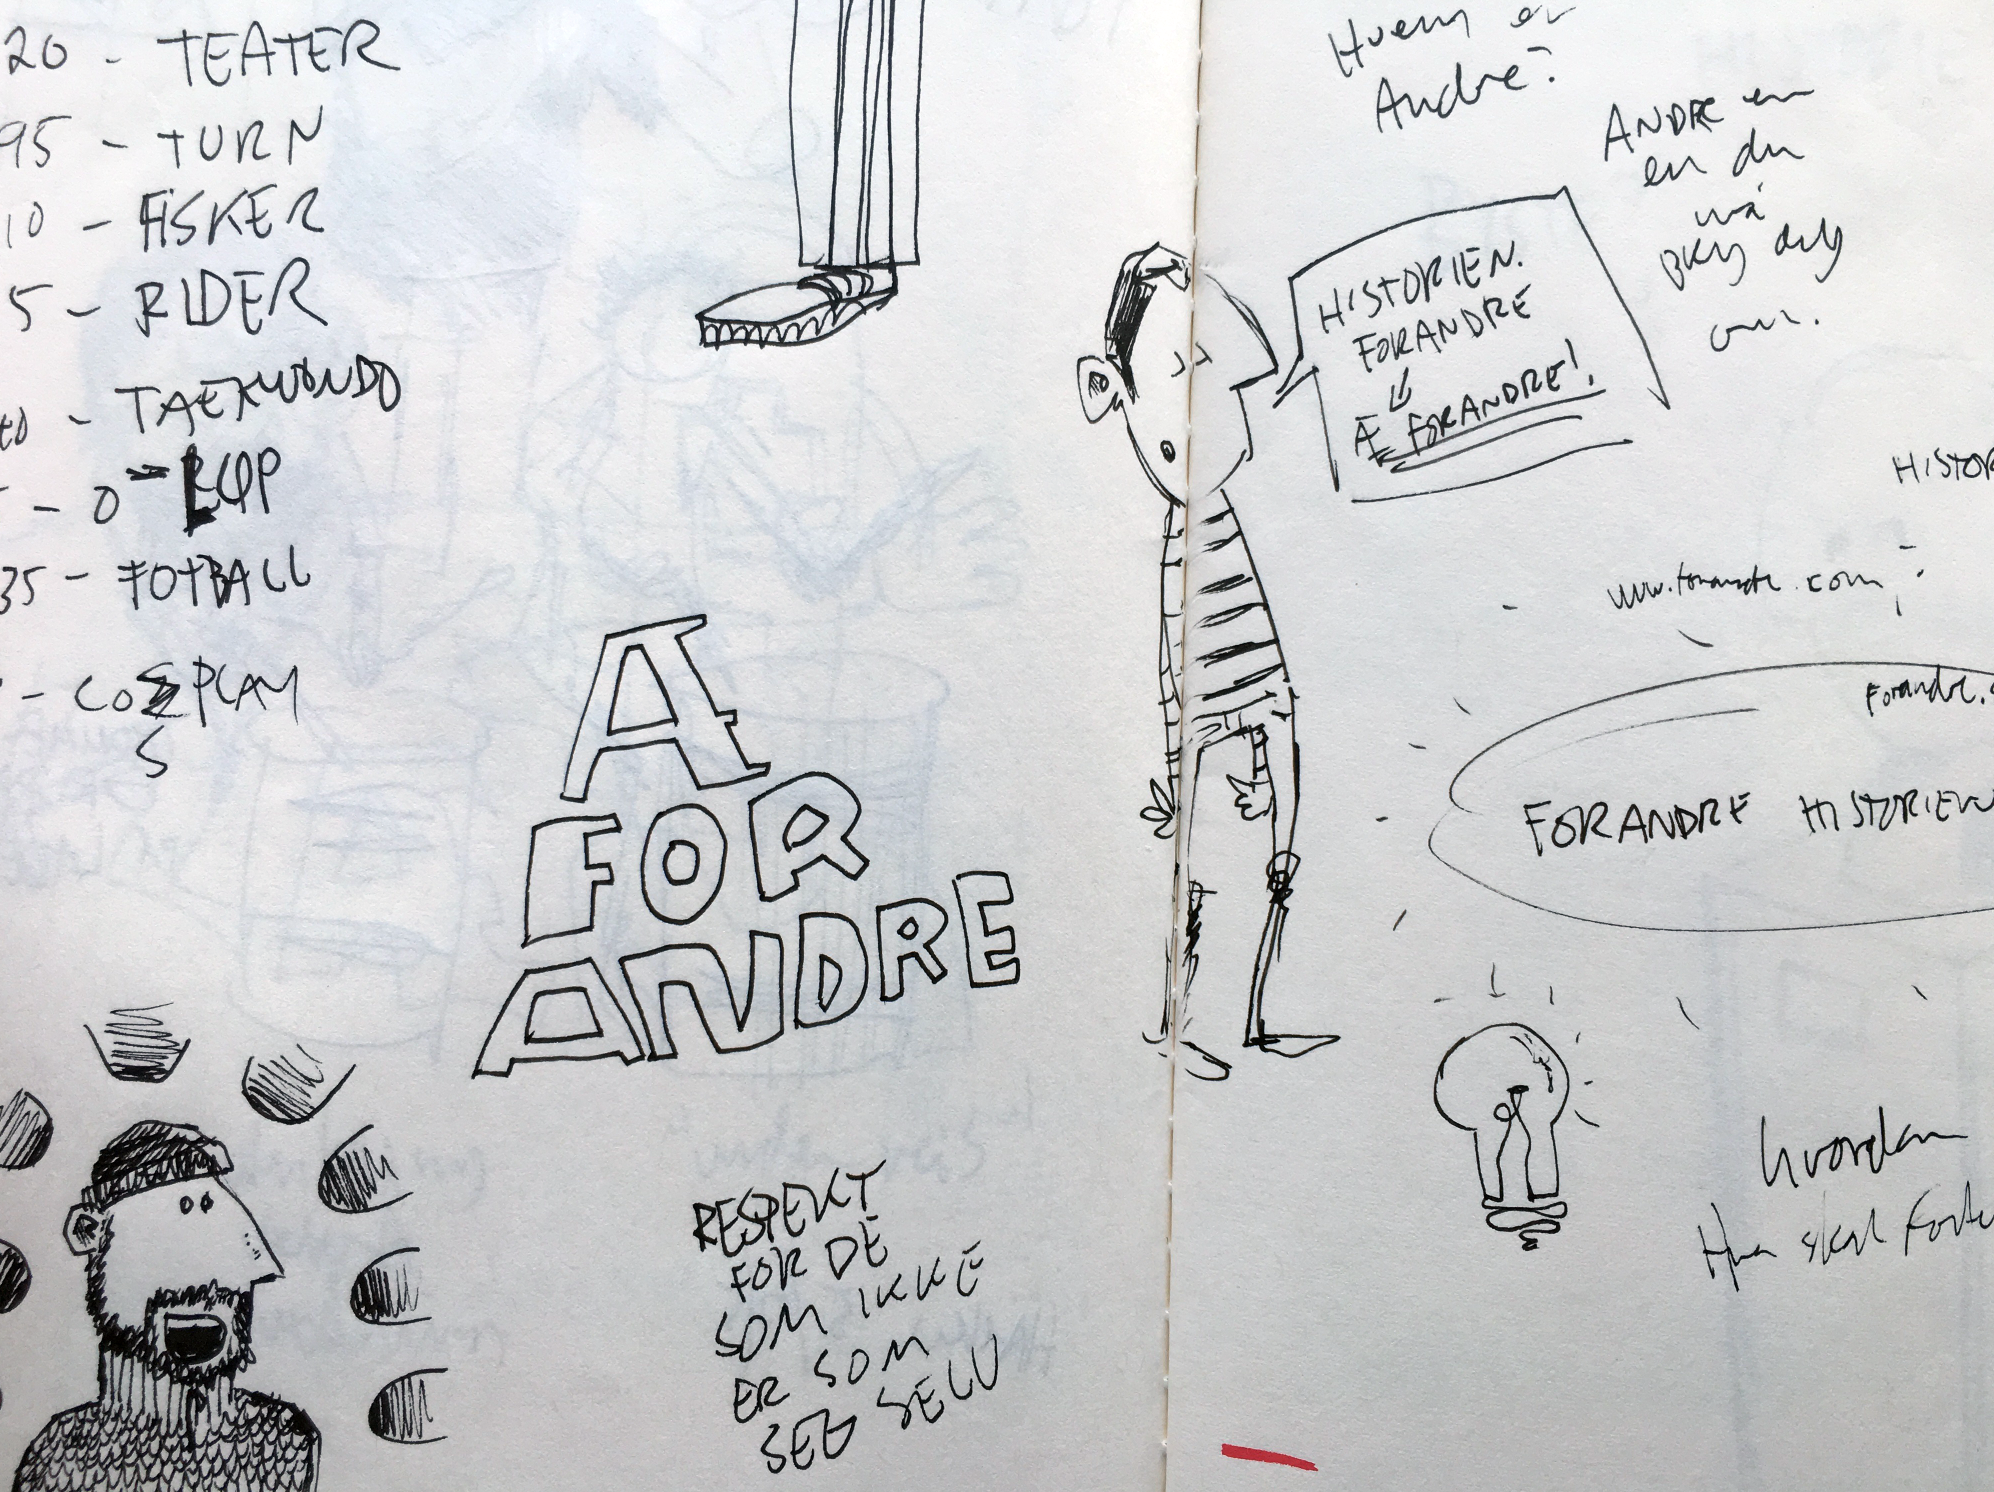 20 - TEATER
95 - TURN
10 - FISKER
5 - RIDER
- TAEKWONDO
- 0 -
35 - FOTBALL
- COSPLAY
S
A
FOR
ANDRE
RESPEKT
FOR DE
SOM IKKE
ER SOM
SEG SELV
Hvem er
Andre?
ANDRE er
en du
må
bry deg
om.
HISTORIEN.
FORANDRE
Æ FORANDRE!
HISTOR
www.forandre.com
Forandre.
FORANDRE HISTORIEN
hvordan
skal